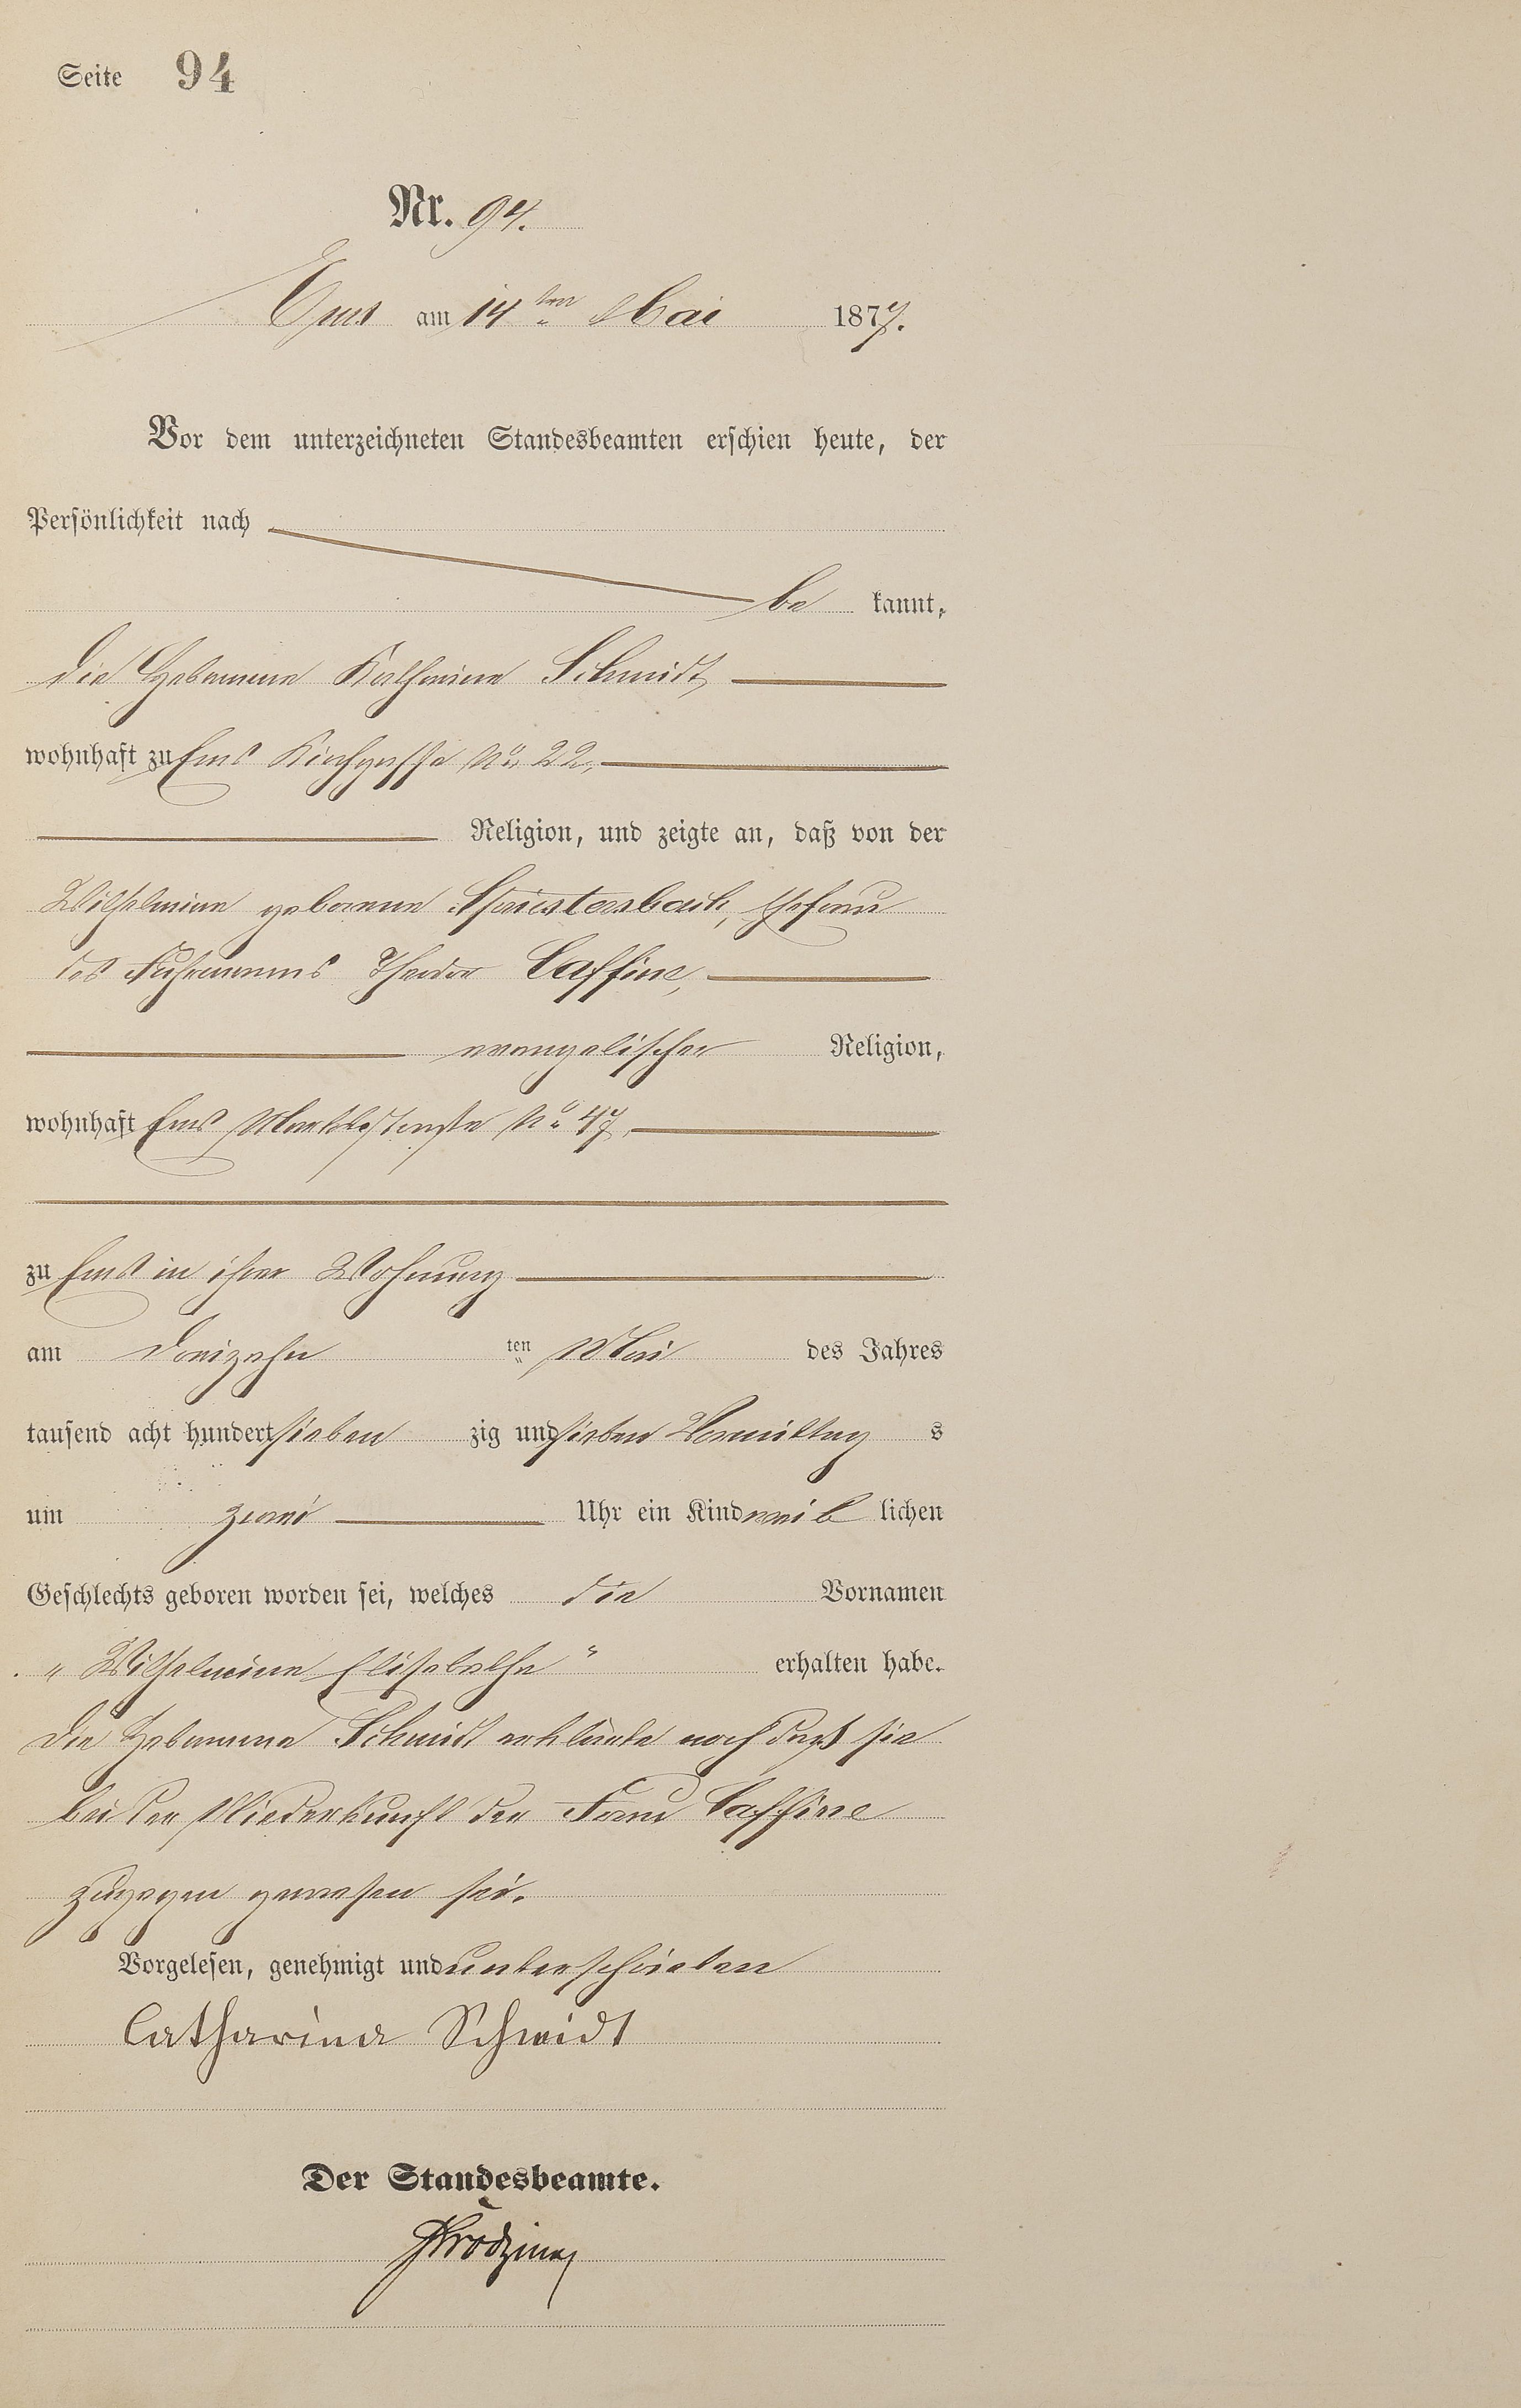 Seite 94
Nr. 94.
Ems am 14ten Mai 1877.
Vor dem unterzeichneten Standesbeamten erschien heute, der
Persönlichkeit nach
be kannt,
die Hebamme Katharina Schmidt,
wohnhaft zu Ems Kirchgasse No 22,
Religion, und zeigte an, daß von der
Wilhelmine geborene Ehefrau
des Fuhrmanns Theodor Caffine,
evangelischer Religion,
wohnhaft Ems No 47,
zu Ems in ihrer Wohnung
am dreizehn ten Mai des Jahres
tausend acht hundert sieben zig und sieben Vormittag s
um zwei Uhr ein Kind weib lichen
Geschlechts geboren worden sei, welches die Vornamen
„Wilhelmine Elisabethe“ erhalten habe.
Die Hebamme Schmidt erklärte noch daß sie
bei der Niederkunft der Frau Caffine
zugegen gewesen sei.
Vorgelesen, genehmigt und unterschrieben
Catharina Schmidt
Der Standesbeamte.